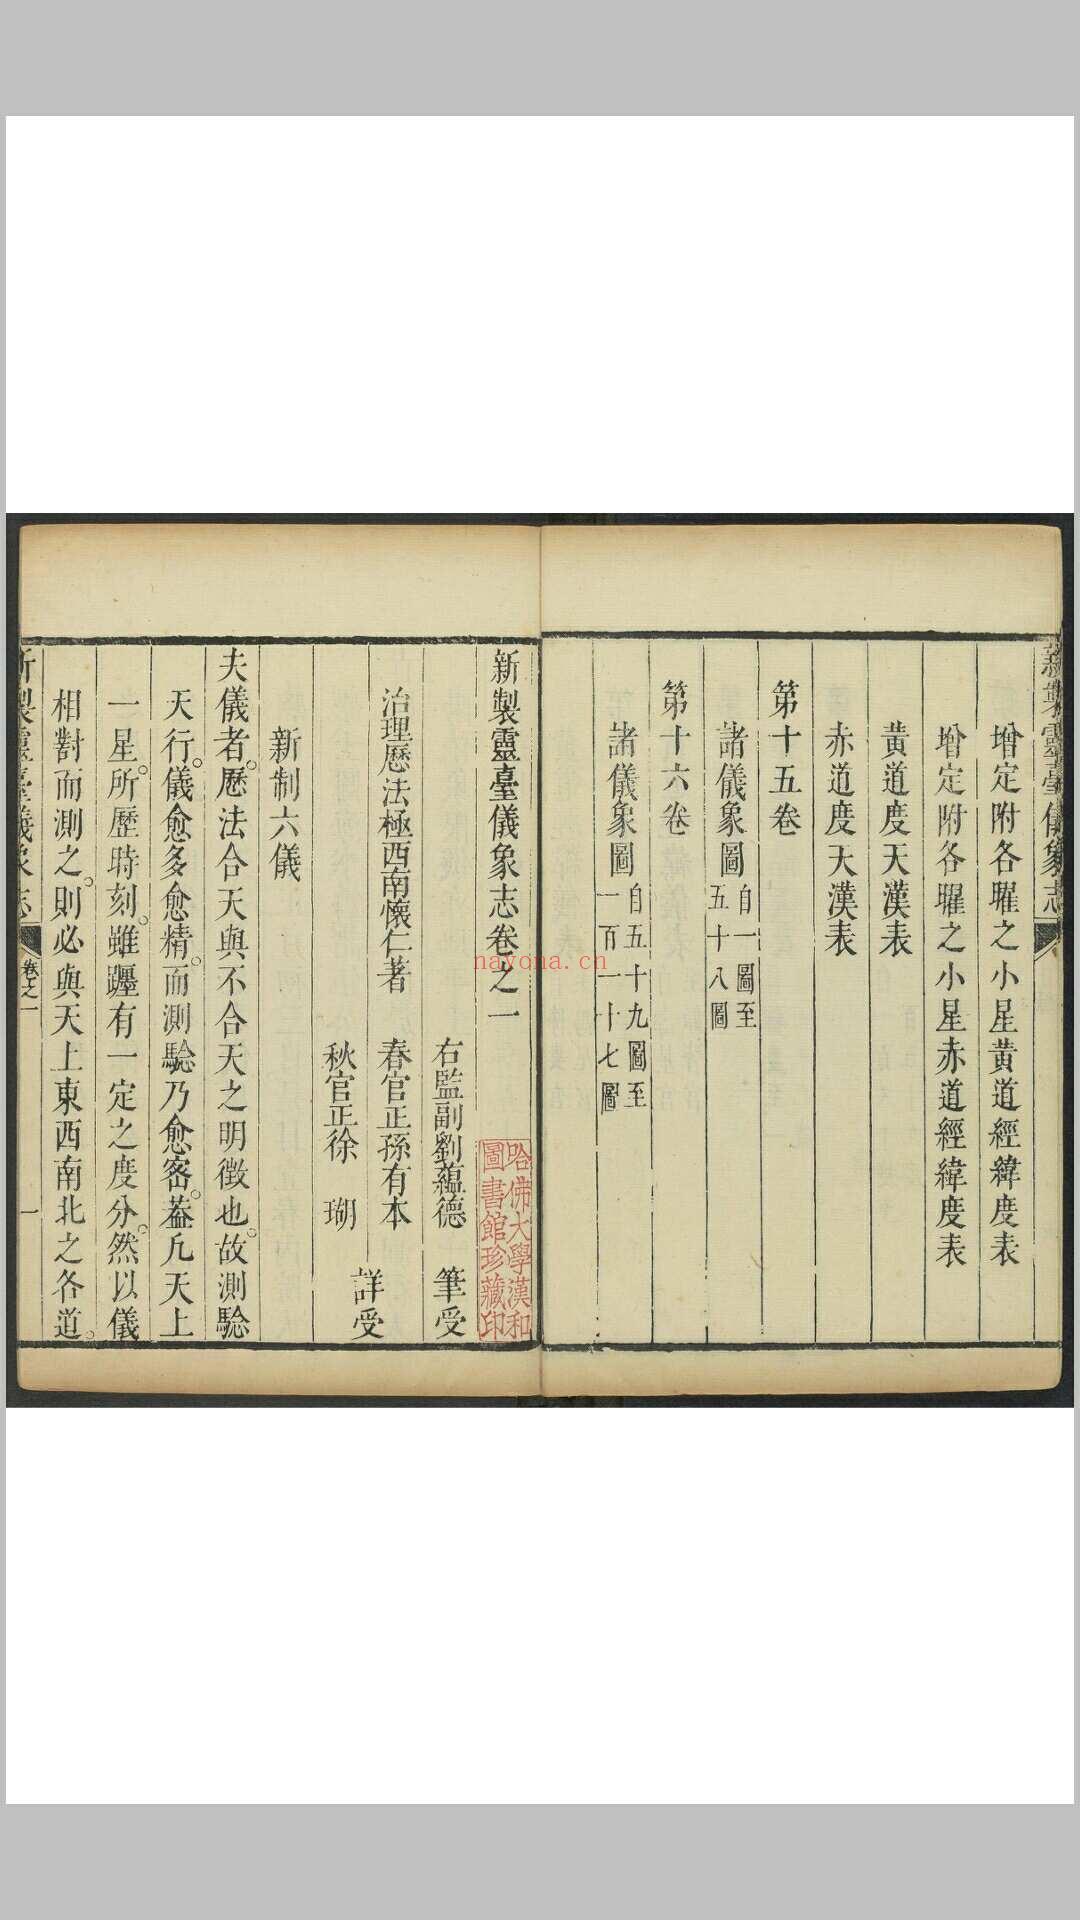 新製靈臺儀象志
增定附各曜之小星黃道經緯度表
增定附各曜之小星赤道經緯度表
黃道度天漢表
赤道度天漢表
第十五卷
諸儀象圖自一圖至五十八圖
第十六卷
諸儀象圖自五十九圖至一百一十七圖
新製靈臺儀象志卷之一
哈佛大學漢和圖書館珍藏印
右監副劉蘊德 筆受
治理曆法極西南懷仁著 春官正孫有本
秋官正徐 瑚
詳受
新制六儀
夫儀者。曆法合天與不合天之明徵也。故測驗
天行。儀愈多愈精。而測驗乃愈密。葢凡天上
一星。所歷時刻。雖躔有一定之度分。然以儀
相對而測之。則必與天上東西南北之各道。
新製靈臺儀象志 卷之一 一
nayona.cn